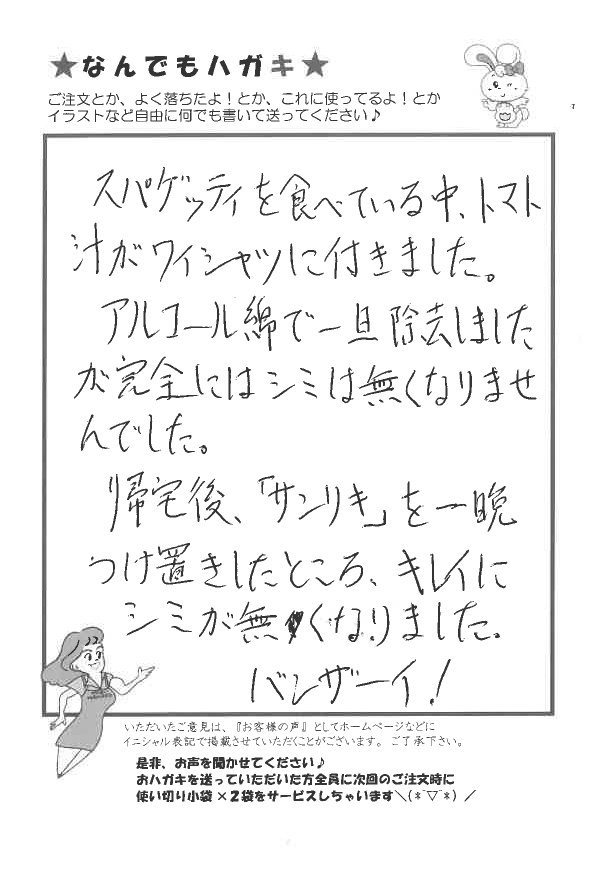 ★なんでもハガキ★
ご注文とか、よく落ちたよ！とか、これに使ってるよ！とか
イラストなど自由に何でも書いて送ってください♪
スパゲッティを食べている中、トマト
汁がワイシャツに付きました。
アルコール綿で一旦除去しました
が完全にはシミは無くなりませ
んでした。
帰宅後、「サンリキ」を一晩
つけ置きしたところ、キレイに
シミが無くなりました。
バンザーイ！
いただいたご意見は、『お客様の声』としてホームページなどに
イニシャル表記で掲載させていただくことがございます。ご了承下さい。
是非、お声を聞かせてください♪
おハガキを送っていただいた方全員に次回のご注文時に
使い切り小袋×２袋をサービスしちゃいます＼(*^▽^*)／